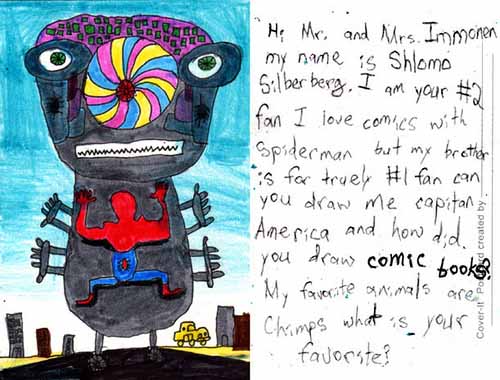 Hi Mr. and Mrs. Immonen
my name is Shlomo
Silberberg. I am your #2
fan I love comics with
Spiderman but my brother
is for truely #1 fan can
you draw me capitan
America and how did
you draw comic books?
My favorite animals are
Chimps what is your
favorste?
Cover-it Postcard created by